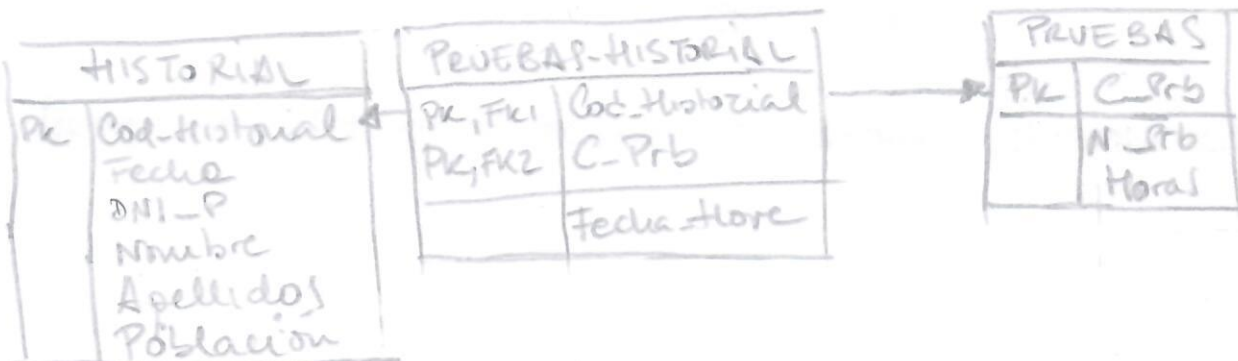 HISTORIAL
PK Cod_Historial
Fecha
DNI_P
Nombre
Apellidos
Población
PRUEBAS-HISTORIAL
PK, FK1 Cod_Historial
PK, FK2 C_Prb
Fecha_Hora
PRUEBAS
PK C_Prb
N_Prb
Horas